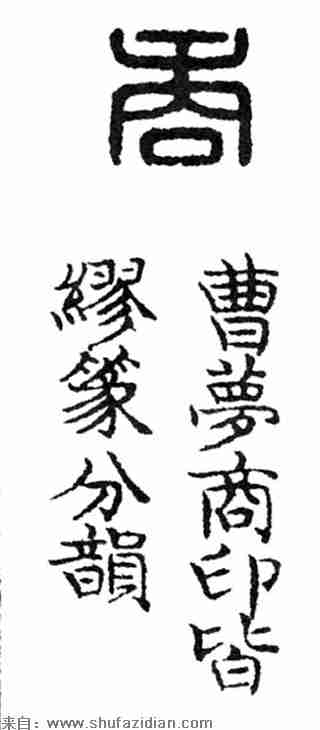 商
曹夢商印皆
繆篆分韻
来自：www.shufazidian.com